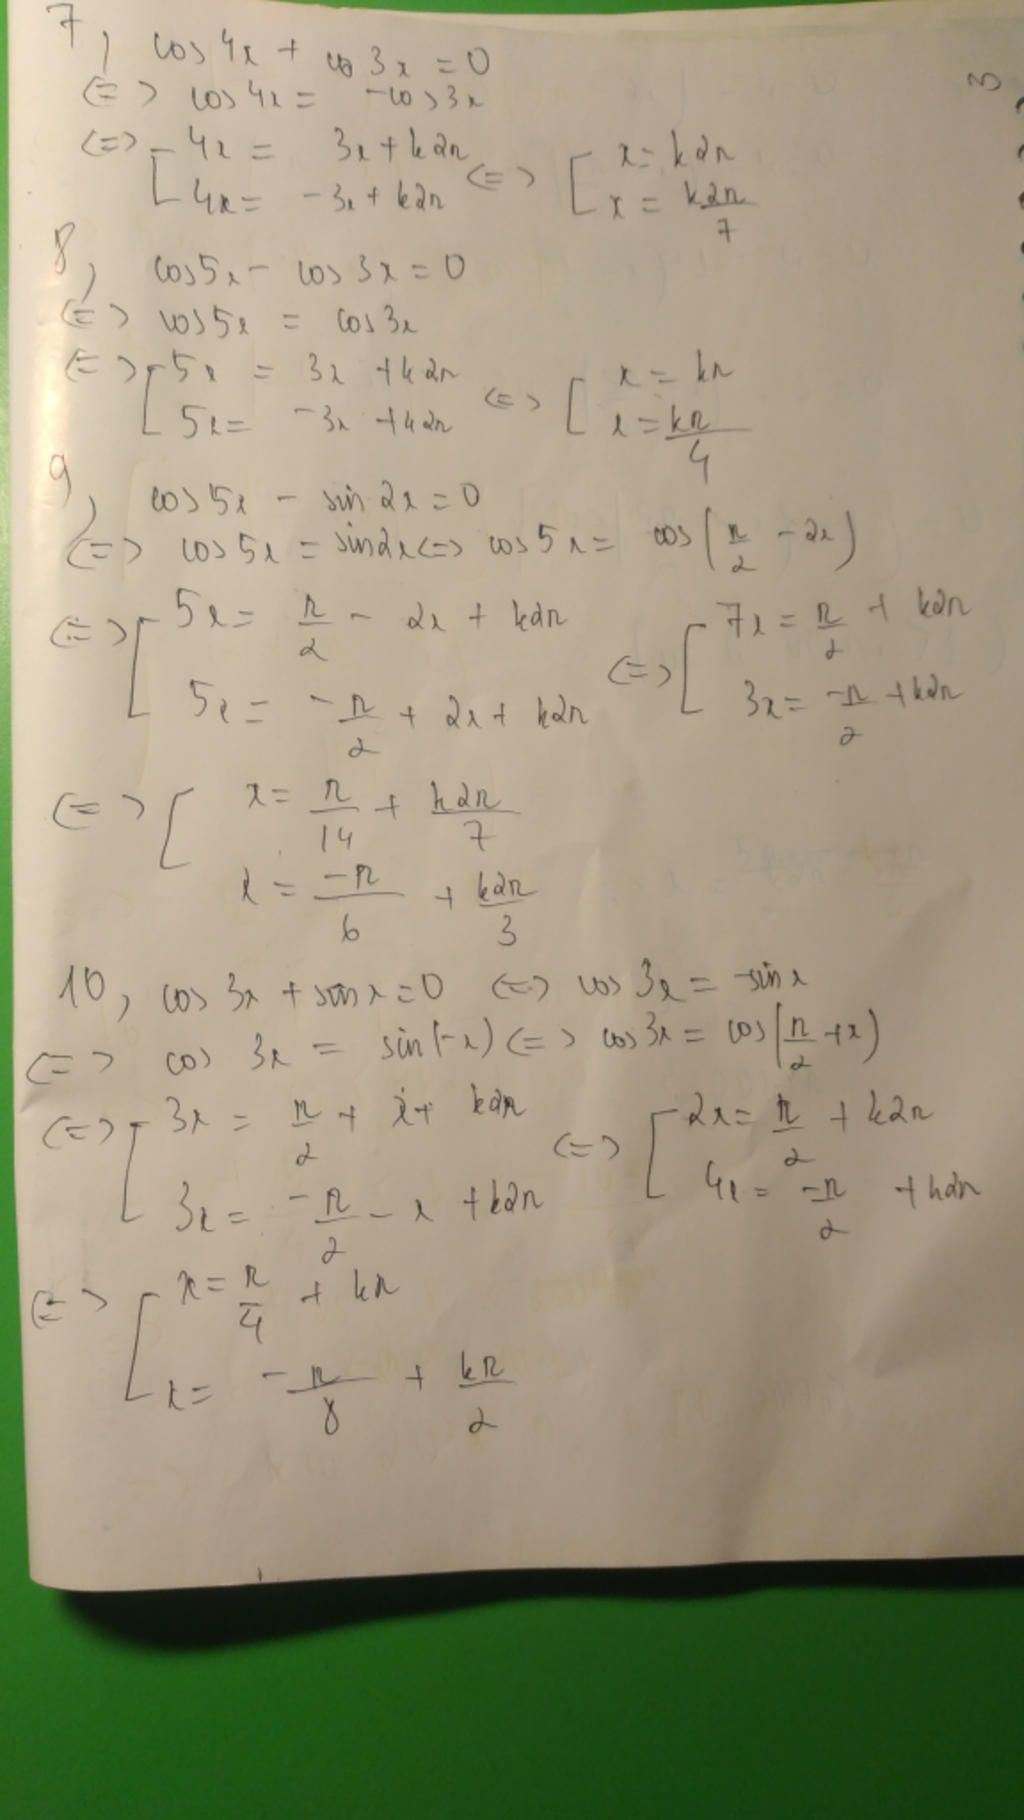 7, cos 4x + cos 3x = 0
3
<=> cos 4x = -cos 3x
<=> [ 4x = 3x + k2π
4x = -3x + k2π <=> [ x = k2π
x = k2π/7
8, cos 5x - cos 3x = 0
<=> cos 5x = cos 3x
<=> [ 5x = 3x + k2π
5x = -3x + k2π <=> [ x = kπ
x = kπ/4
9, cos 5x - sin 2x = 0
<=> cos 5x = sin 2x <=> cos 5x = cos (π/2 - 2x)
<=> [ 5x = π/2 - 2x + k2π
5x = -π/2 + 2x + k2π <=> [ 7x = π/2 + k2π
3x = -π/2 + k2π
<=> [ x = π/14 + k2π/7
x = -π/6 + k2π/3
10, cos 3x + sin x = 0 <=> cos 3x = -sin x
<=> cos 3x = sin(-x) <=> cos 3x = cos (π/2 + x)
<=> [ 3x = π/2 + x + k2π
3x = -π/2 - x + k2π <=> [ 2x = π/2 + k2π
4x = -π/2 + k2π
<=> [ x = π/4 + kπ
x = -π/8 + kπ/2